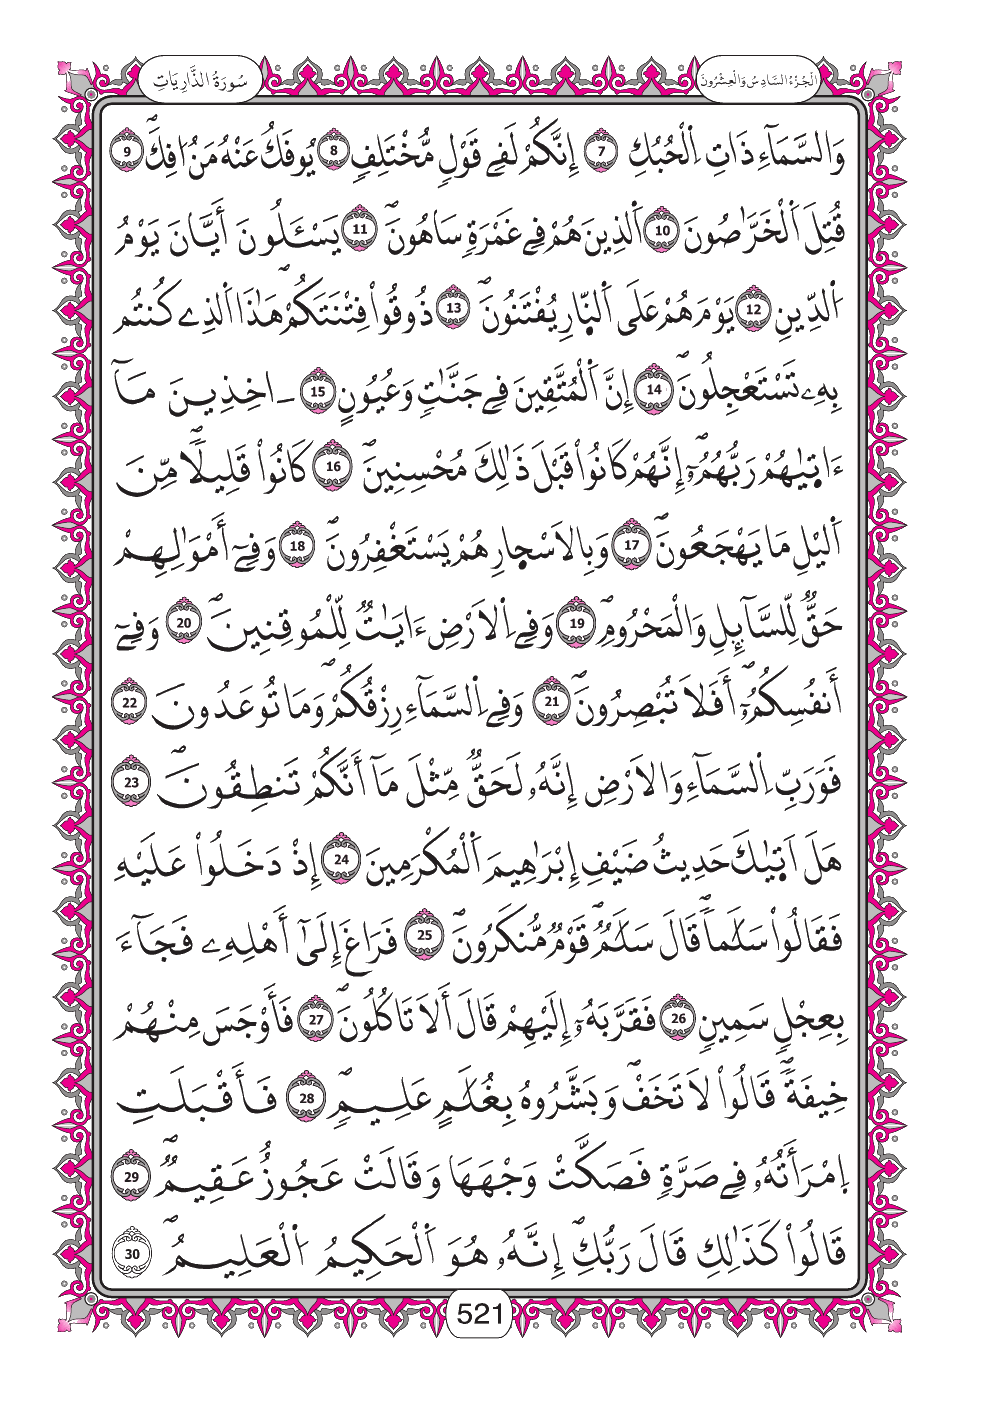 الْجُزْءُ السَّادِسُ وَالْعِشْرُونَ
سُورَةُ الذَّارِيَاتِ
وَالسَّمَآءِ ذَاتِ اِ۬لْحُبُكِ 7 إِنَّكُمْ لَفِے قَوْلٖ مُّخْتَلِفٖ 8 يُوفَكُ عَنْهُ مَنُ ا۟فِكَۖ 9
قُتِلَ اَ۬لْخَرَّٰصُونَ 10 اَ۬لذِينَ هُمْ فِے غَمْرَةٖ سَاهُونَۖ 11 يَسْـَٔلُونَ أَيَّانَ يَوْمُ
اُ۬لدِّينِ 12 يَوْمَ هُمْ عَلَي اَ۬لنّ۪ارِ يُفْتَنُونَۖ 13 ذُوقُواْ فِتْنَتَكُمْۖ هَٰذَا اَ۬لذِے كُنتُم
بِهِۦ تَسْتَعْجِلُونَۖ 14 إِنَّ اَ۬لْمُتَّقِينَ فِے جَنَّٰتٖ وَعُيُونٍ 15 ـ اخِذِينَ مَآ
ءَات۪يٰهُمْ رَبُّهُمُۥٓۖ إِنَّهُمْ كَانُواْ قَبْلَ ذَٰلِكَ مُحْسِنِينَۖ 16 كَانُواْ قَلِيلاٗۖ مِّنَ
اَ۬ليْلِ مَا يَهْجَعُونَۖ 17 وَبِالَاسْح۪ارِ هُمْ يَسْتَغْفِرُونَۖ 18 وَفِےٓ أَمْوَٰلِهِمْ
حَقّٞ لِّلسَّآئِلِ وَالْمَحْرُومِۖ 19 وَفِے اِ۬لَارْضِ ءَايَٰتٞ لِّلْمُوقِنِينَۖ 20 وَفِےٓ
أَنفُسِكُمُۥٓۖ أَفَلَا تُبْصِرُونَۖ 21 وَفِے اِ۬لسَّمَآءِ رِزْقُكُمْۖ وَمَا تُوعَدُونَ 22
فَوَرَبِّ اِ۬لسَّمَآءِ وَالَارْضِ إِنَّهُۥ لَحَقّٞ مِّثْلَ مَآ أَنَّكُمْ تَنطِقُونَۖ 23
هَلَ اَت۪يٰكَ حَدِيثُ ضَيْفِ إِبْرَٰهِيمَ اَ۬لْمُكْرَمِينَ 24 إِذْ دَخَلُواْ عَلَيْهِ
فَقَالُواْ سَلَٰماٗۖ قَالَ سَلَٰمٞۖ قَوْمٞ مُّنكَرُونَۖ 25 فَرَاغَ إِلَىٰٓ أَهْلِهِۦ فَجَآءَ
بِعِجْلٖ سَمِينٖ 26 فَقَرَّبَهُۥٓ إِلَيْهِمْ قَالَ أَلَا تَاكُلُونَۖ 27 فَأَوْجَسَ مِنْهُمْ
خِيفَةٗۖ قَالُواْ لَا تَخَفْۖ وَبَشَّرُوهُ بِغُلَٰمٍ عَلِيمٖۖ 28 فَأَقْبَلَتِ
اِ۪مْرَأَتُهُۥ فِے صَرَّةٖ فَصَكَّتْ وَجْهَهَا وَقَالَتْ عَجُوزٌ عَقِيمٞۖ 29
قَالُواْ كَذَٰلِكِ قَالَ رَبُّكِۖ إِنَّهُۥ هُوَ اَ۬لْحَكِيمُ اُ۬لْعَلِيمُۖ 30
521